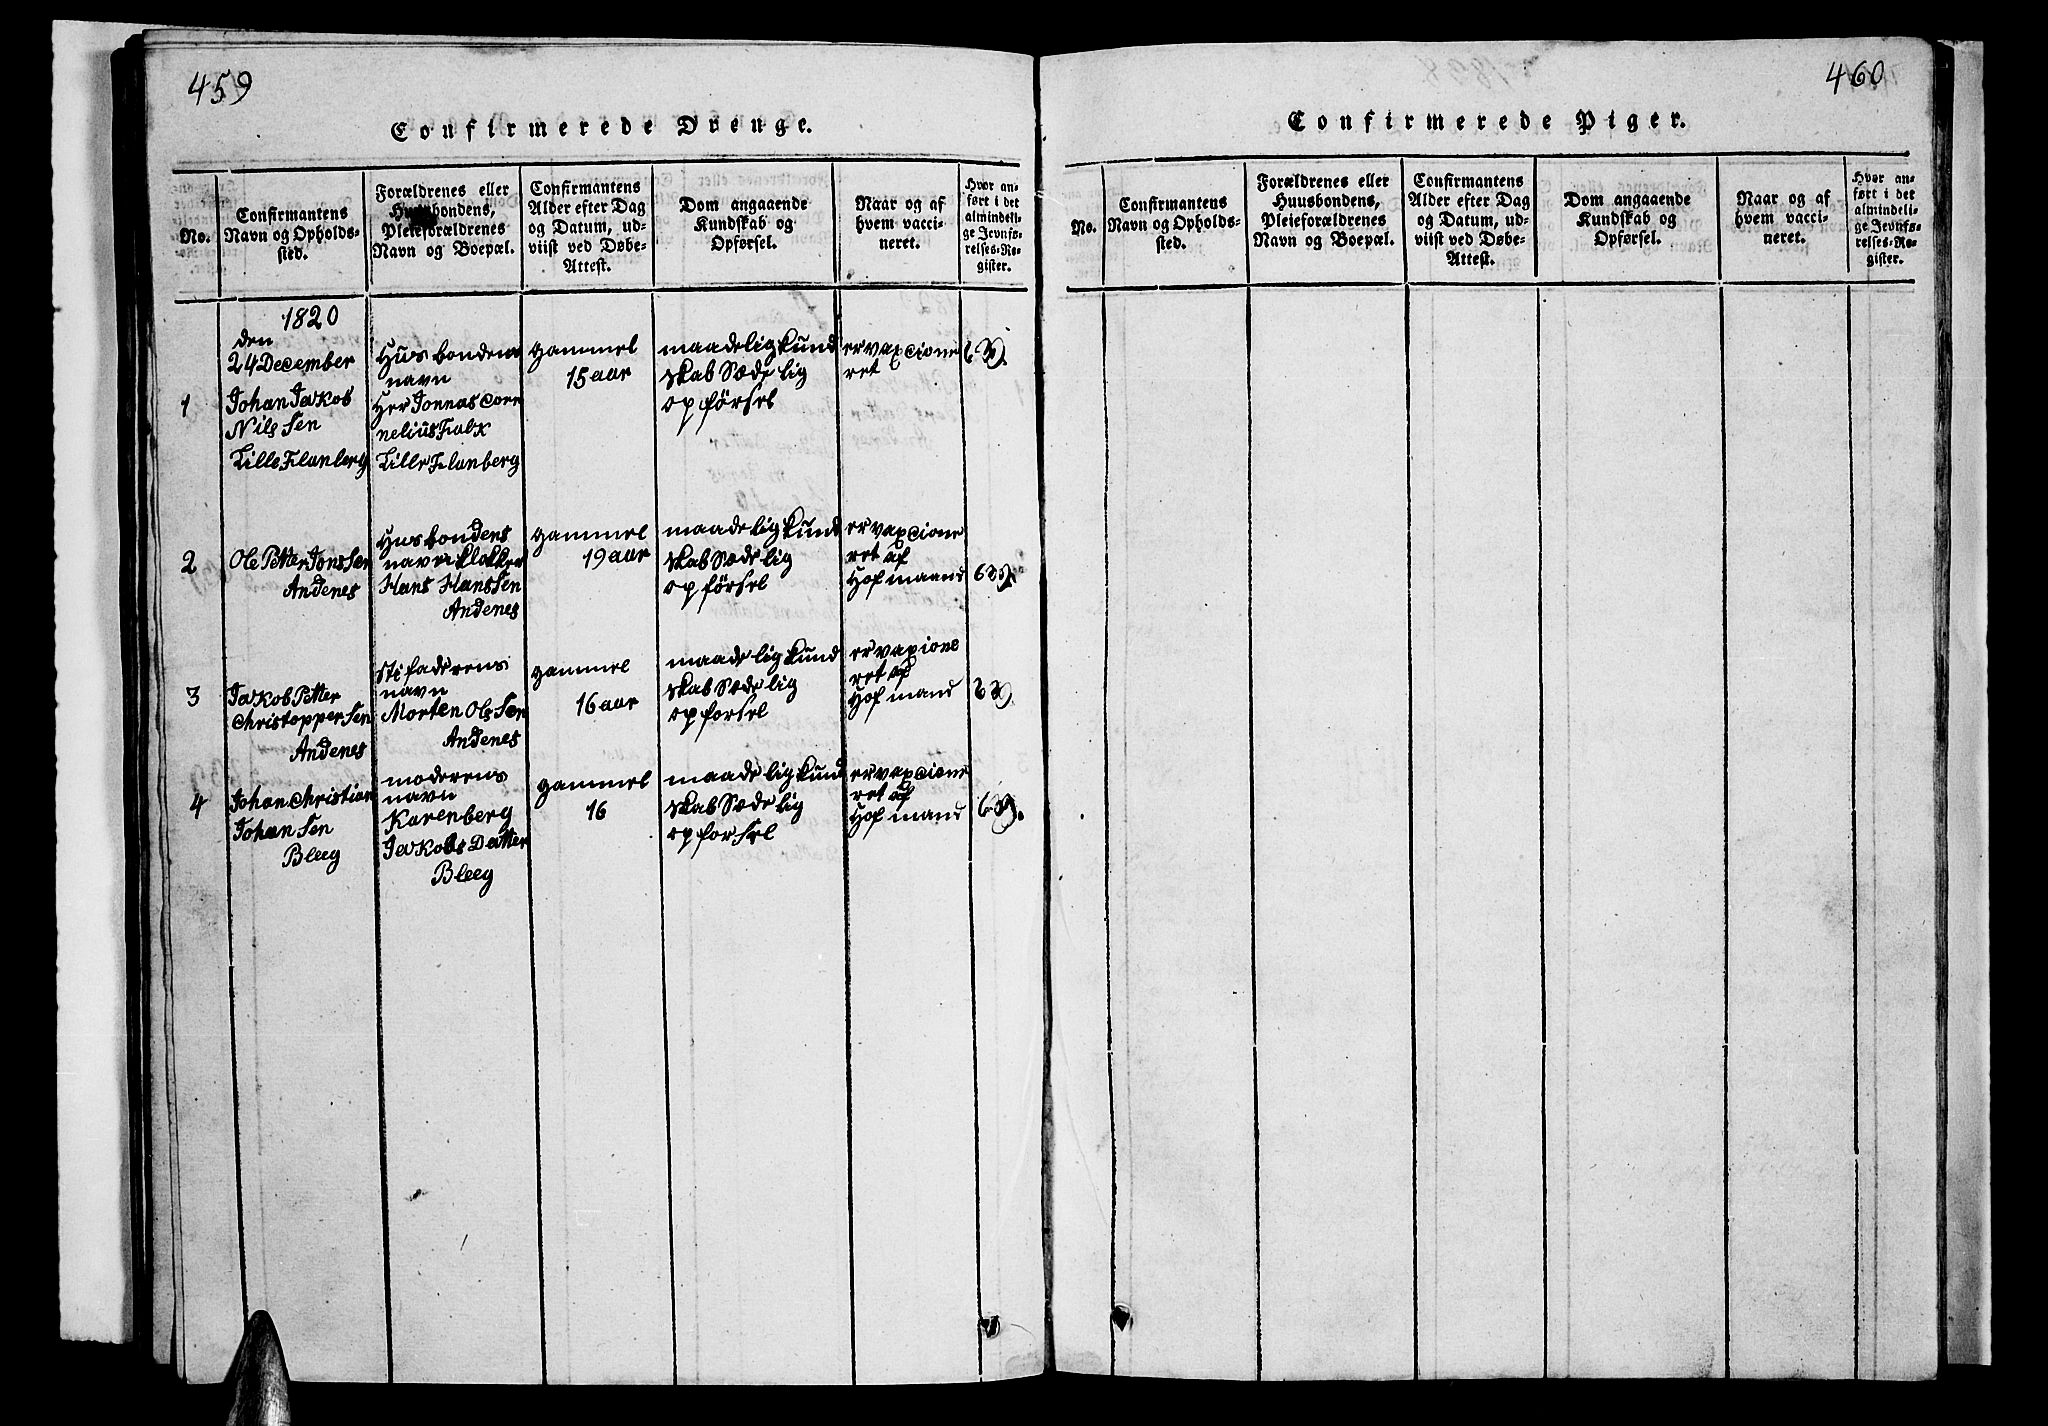 459
Confirmerede Drenge.
No.
Confirmantens
Navn og Opholds-
sted.
Forældrenes eller
Huusbondens,
Pleieforældrenes
Navn og Boepæl.
Confirmantens
Alder efter Dag
og Datum, ud-
viist ved Døbe-
Attest.
Dom angaaende
Kundskab og
Opførsel.
Naar og af
hvem vacci-
neret.
Hvor an-
ført i det
almindeli-
ge Jevnfø-
relses-Re-
gister.
1820
den
24 December
1
Johan Jakob
Nils Sen
Lille Flanberg
Husbondens
navn
Her Jonnas Corn
nelius Falk
Lille Flanberg
gammel
15 aar
maadelig Kund
skab Sædelig
opförsel
er vaxcione
ret
639.
2
Ole Petter Jons Sen
Andenes
Husbondens
navn Klokker
Hans Hans Sen
Andenes
gammel
19 aar
maadelig Kund
skab Sædelig
opförsel
er vaxcione
ret af
Hofmaand
639.
3
Jakob Petter
Christopper Sen
Andenes
Stifaderens
navn
Morten Ols Sen
Andenes
gammel
16 aar
maadelig Kund
skab Sædelig
opforsel
er vaxione
ret af
Hofmand
639.
4
Johan Christian
Johan Sen
Bleeg
moderens
navn
Karenberg
Jakobs Datter
Bleeg
gammel
16
maadelig Kund
skab Sædelig
opforsel
er vaxcione
ret af
Hofmand
639.
460
Confirmerede Piger.
No.
Confirmantens
Navn og Opholds-
sted.
Forældrenes eller
Huusbondens,
Pleieforældrenes
Navn og Boepæl.
Confirmantens
Alder efter Dag
og Datum, ud-
viist ved Døbe-
Attest.
Dom angaaende
Kundskab og
Opførsel.
Naar og af
hvem vacci-
neret.
Hvor an-
ført i det
almindeli-
ge Jevnfø-
relses-Re-
gister.